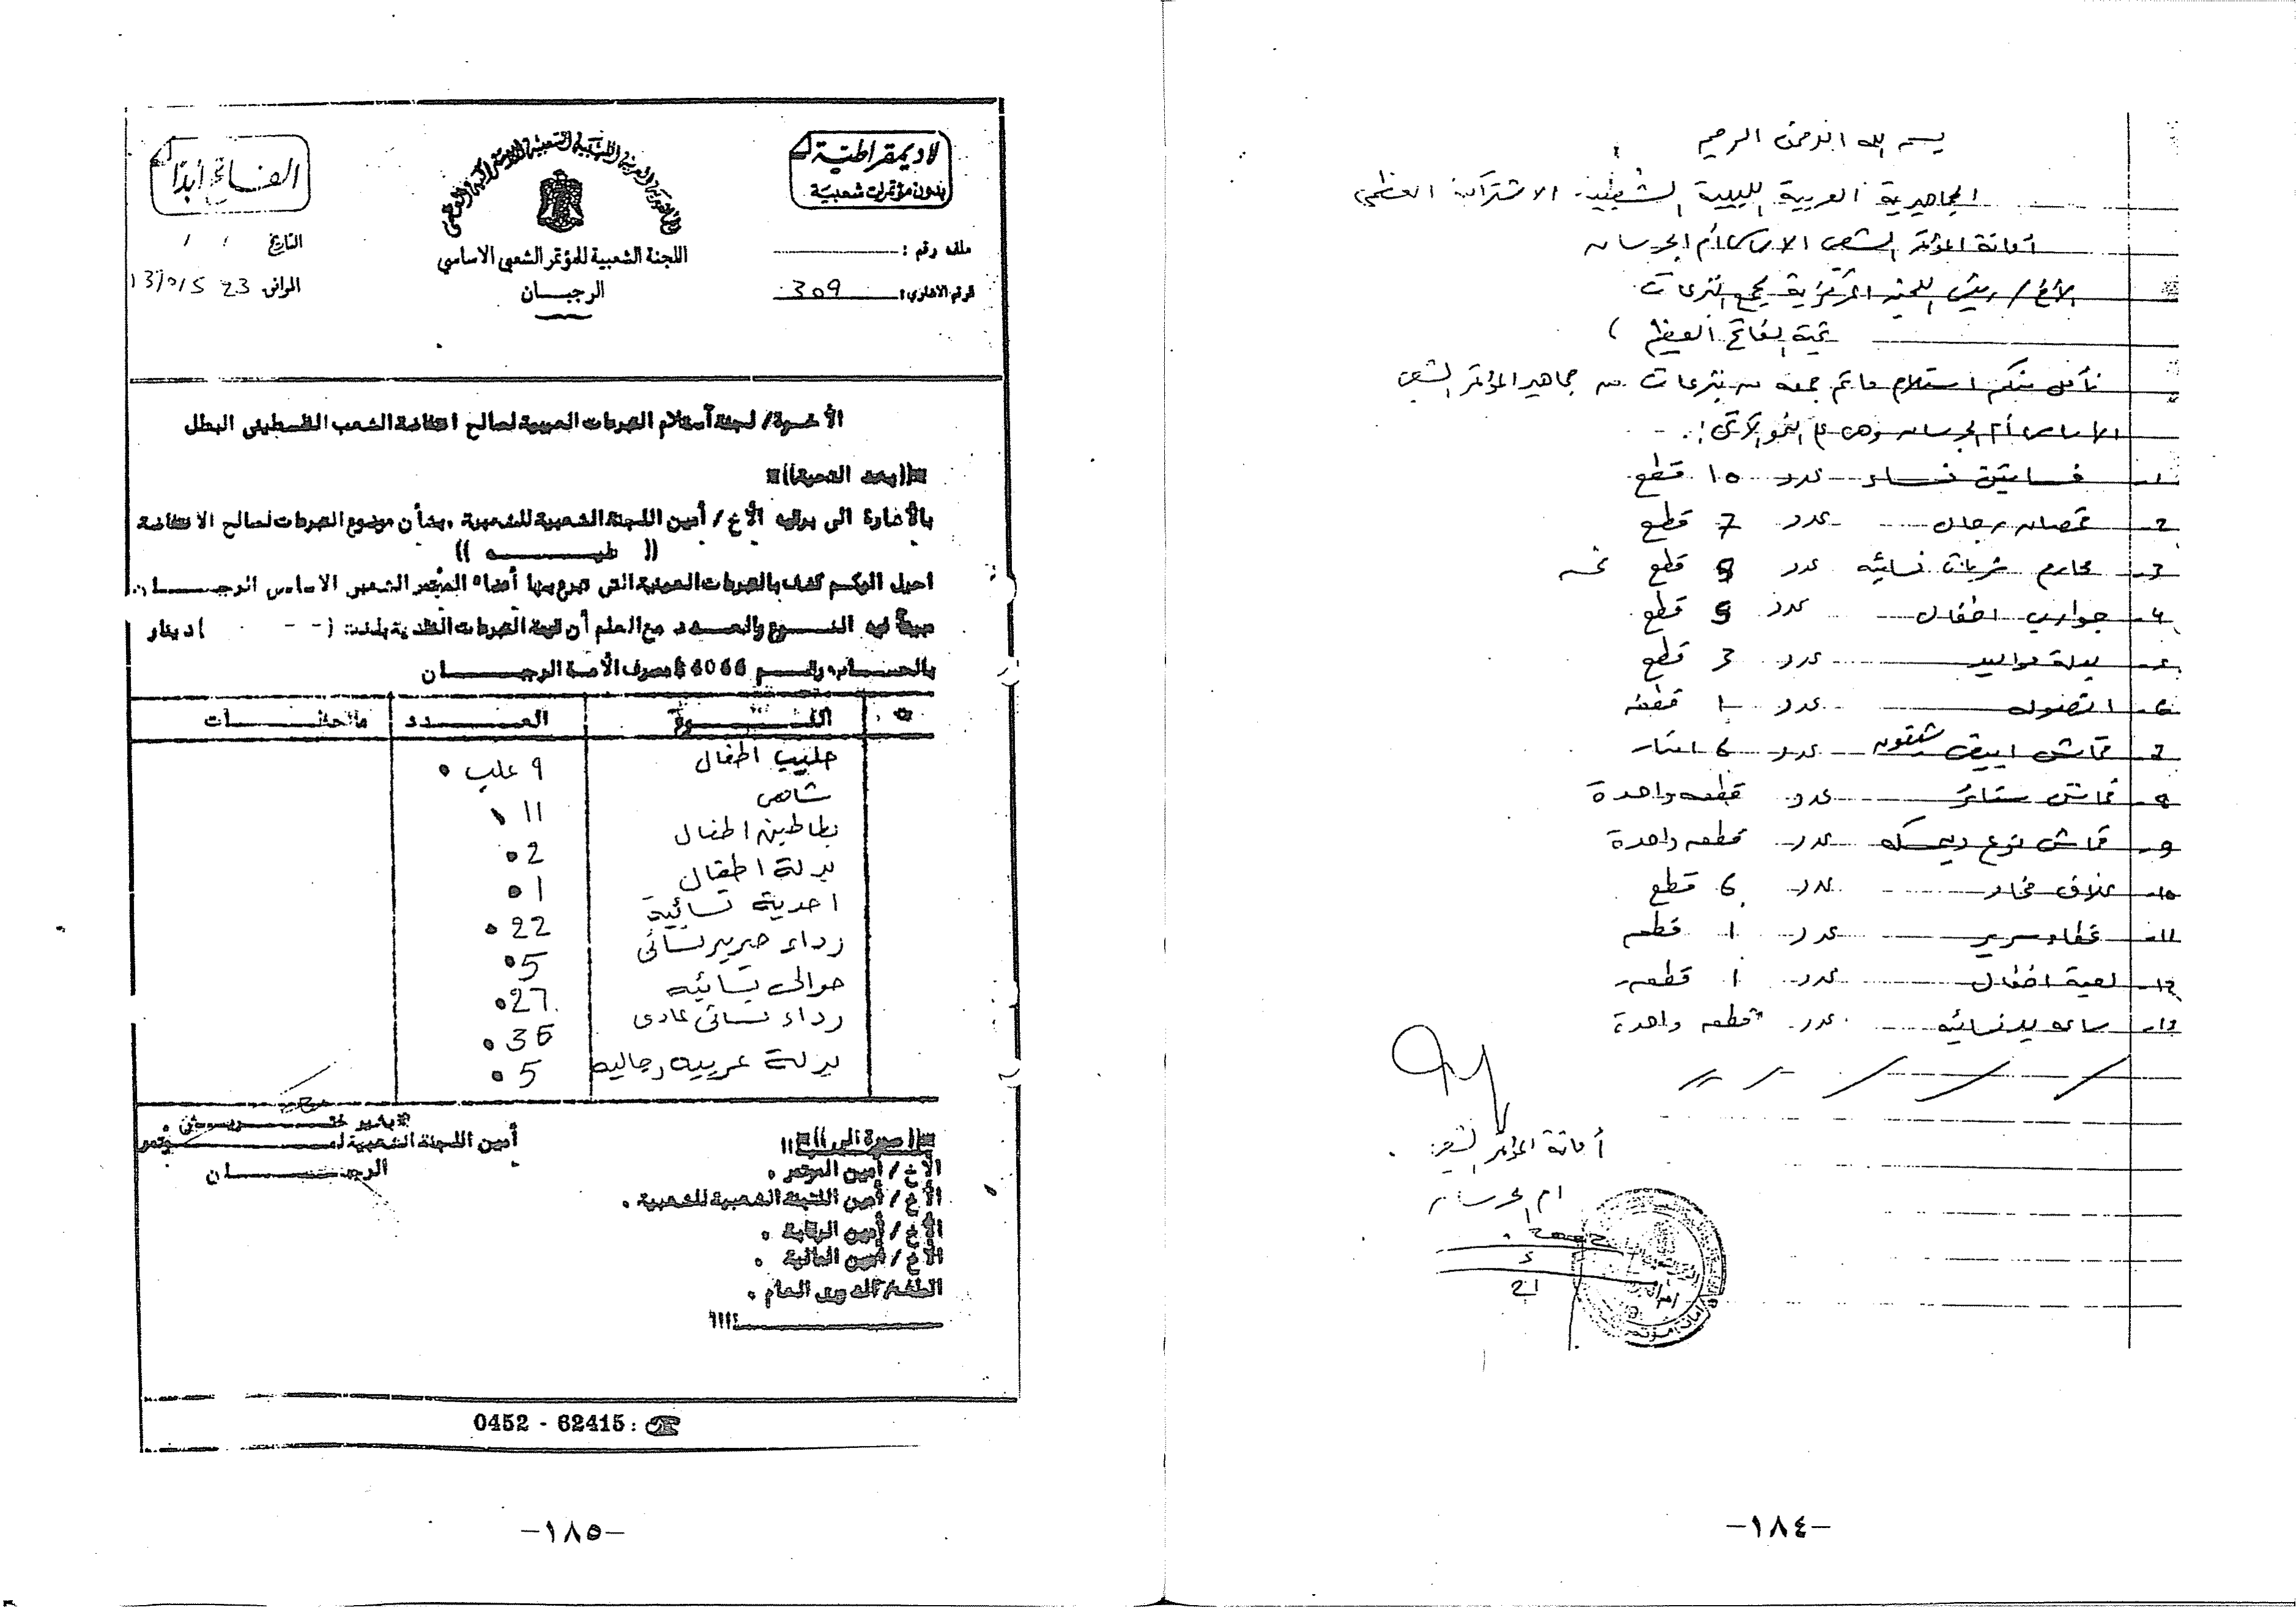 بسم الله الرحمن الرحيم
الجماهيرية العربية الليبية الشعبية الاشتراكية العظمى
أمانة المؤتمر الشعبى الاساسى أم الجرسان
الأخ / رئيس اللجنة المركزية لجمع التبرعات
تحية الفاتح العظيم )
نأمل منكم استلام ماتم جمعه من تبرعات من جماهير المؤتمر الشعبى
الاساسى أم الجرسان وهى على النحو الآتى :. -
1- فساتين نساء عدد 10 قطع
2- قمصان رجال عدد 7 قطع
3- محارم نسائيه عدد 5 قطع
4- جوارب اطفال عدد 5 قطع
5- بدلة مواليد عدد 3 قطع
6- عدد 1 قطعه
7- قماش ابيض عدد 6 امتار
8- قماش ستائر عدد قطعه واحدة
9- قماش نوع عدد قطعه واحدة
10- غلاف مخاد عدد 6 قطع
11- غطاء سرير عدد 1 قطعه
12- لعبة اطفال عدد 1 قطعه
13- ساعه يد نسائيه عدد قطعه واحدة
أمانة المؤتمر الشعبى
ام الجرسان
-١٨٤-
لاديمقراطية
بدون مؤتمرات شعبية
الجماهيرية العربية الليبية الشعبية الاشتراكية العظمى
الفاتح أبدًا
اللجنة الشعبية للمؤتمر الشعبى الاساسي
الرجبـــان
ملف رقم :
الرقم الاشاري : 309
التاريخ / /
الموافق 23
الأخـوة/ لجنة أستلام التبرعات العينية لصالح انتفاضة الشعب الفلسطينى البطل
((بعد التحية))
بالأشارة الى برقيه الأخ / أمين اللجنة الشعبية للشعبية ،بشأن موضوع التبرعات لصالح الانتفاضة
(( عليـــــه ))
احيل اليكـم كشف بالتبرعات العينية التى تبرع بها أعضاء المؤتمر الشعبى الاساسى الرجبـــان.
مبيناً فيه النــوع والعـــدد مع العلم أن قيمة التبرعات النقدية بلغت (-- ) دينار
بالحساب رقـــم مصرف الأمـة الرجبـــان
النـــــوع العـــــدد ملاحظـــــات
حليب اطفال 9 علب
شاهى 11
بطاطين اطفال 2
بدلة اطفال 1
احدية نسائية 22
رداء حرير نسائى 5
حوالى نسائيه 27
رداء نسائى عادى 36
بدلة عربيه رجاليه 5
أمين اللجنة الشعبية
الرجبـــان
((صورة الى))
الأخ / أمين المؤتمر .
الأخ / أمين اللجنة الشعبية للشعبية .
الأخ / أمين الرقابة .
الأخ / أمين المالية .
الملف/ الدورى العام .
0452 - 62415 :
-١٨٥-